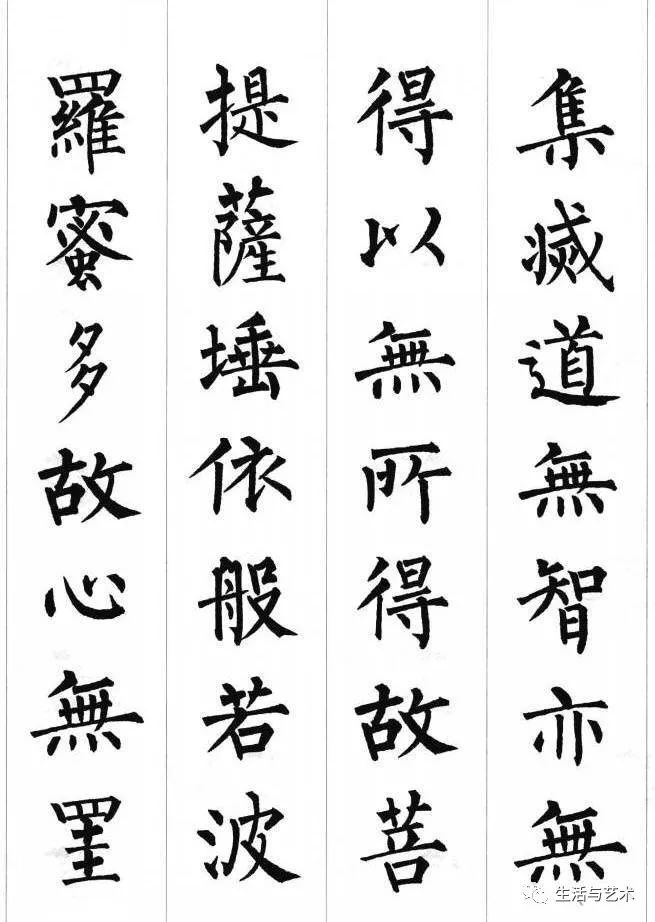 集滅道無智亦無
得以無所得故菩
提薩埵依般若波
羅蜜多故心無罣
生活与艺术